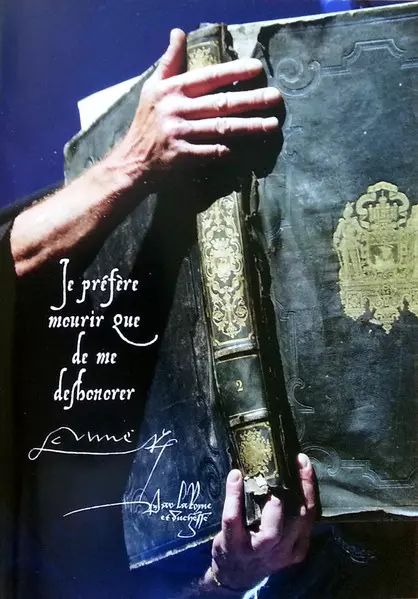 Je préfère
mourir que
de me
deshonorer
Anne
Par la Royne
et duchesse
2